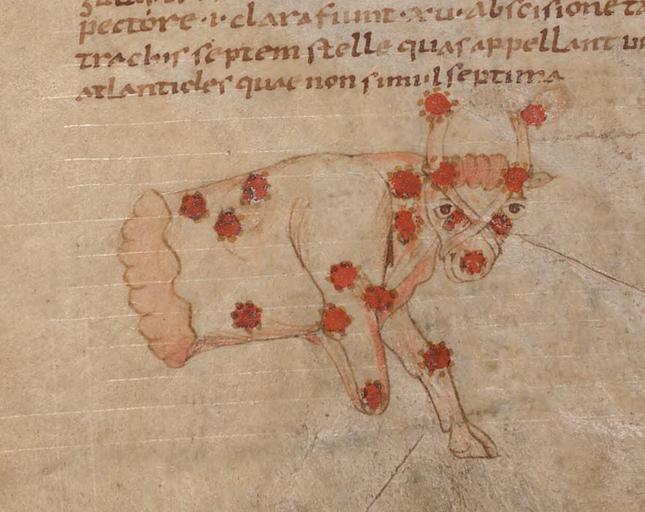 pectore · i · clara fiunt · xu · abscisione ta
trachis septem stelle quas appellant
atlantides quae non simul septima